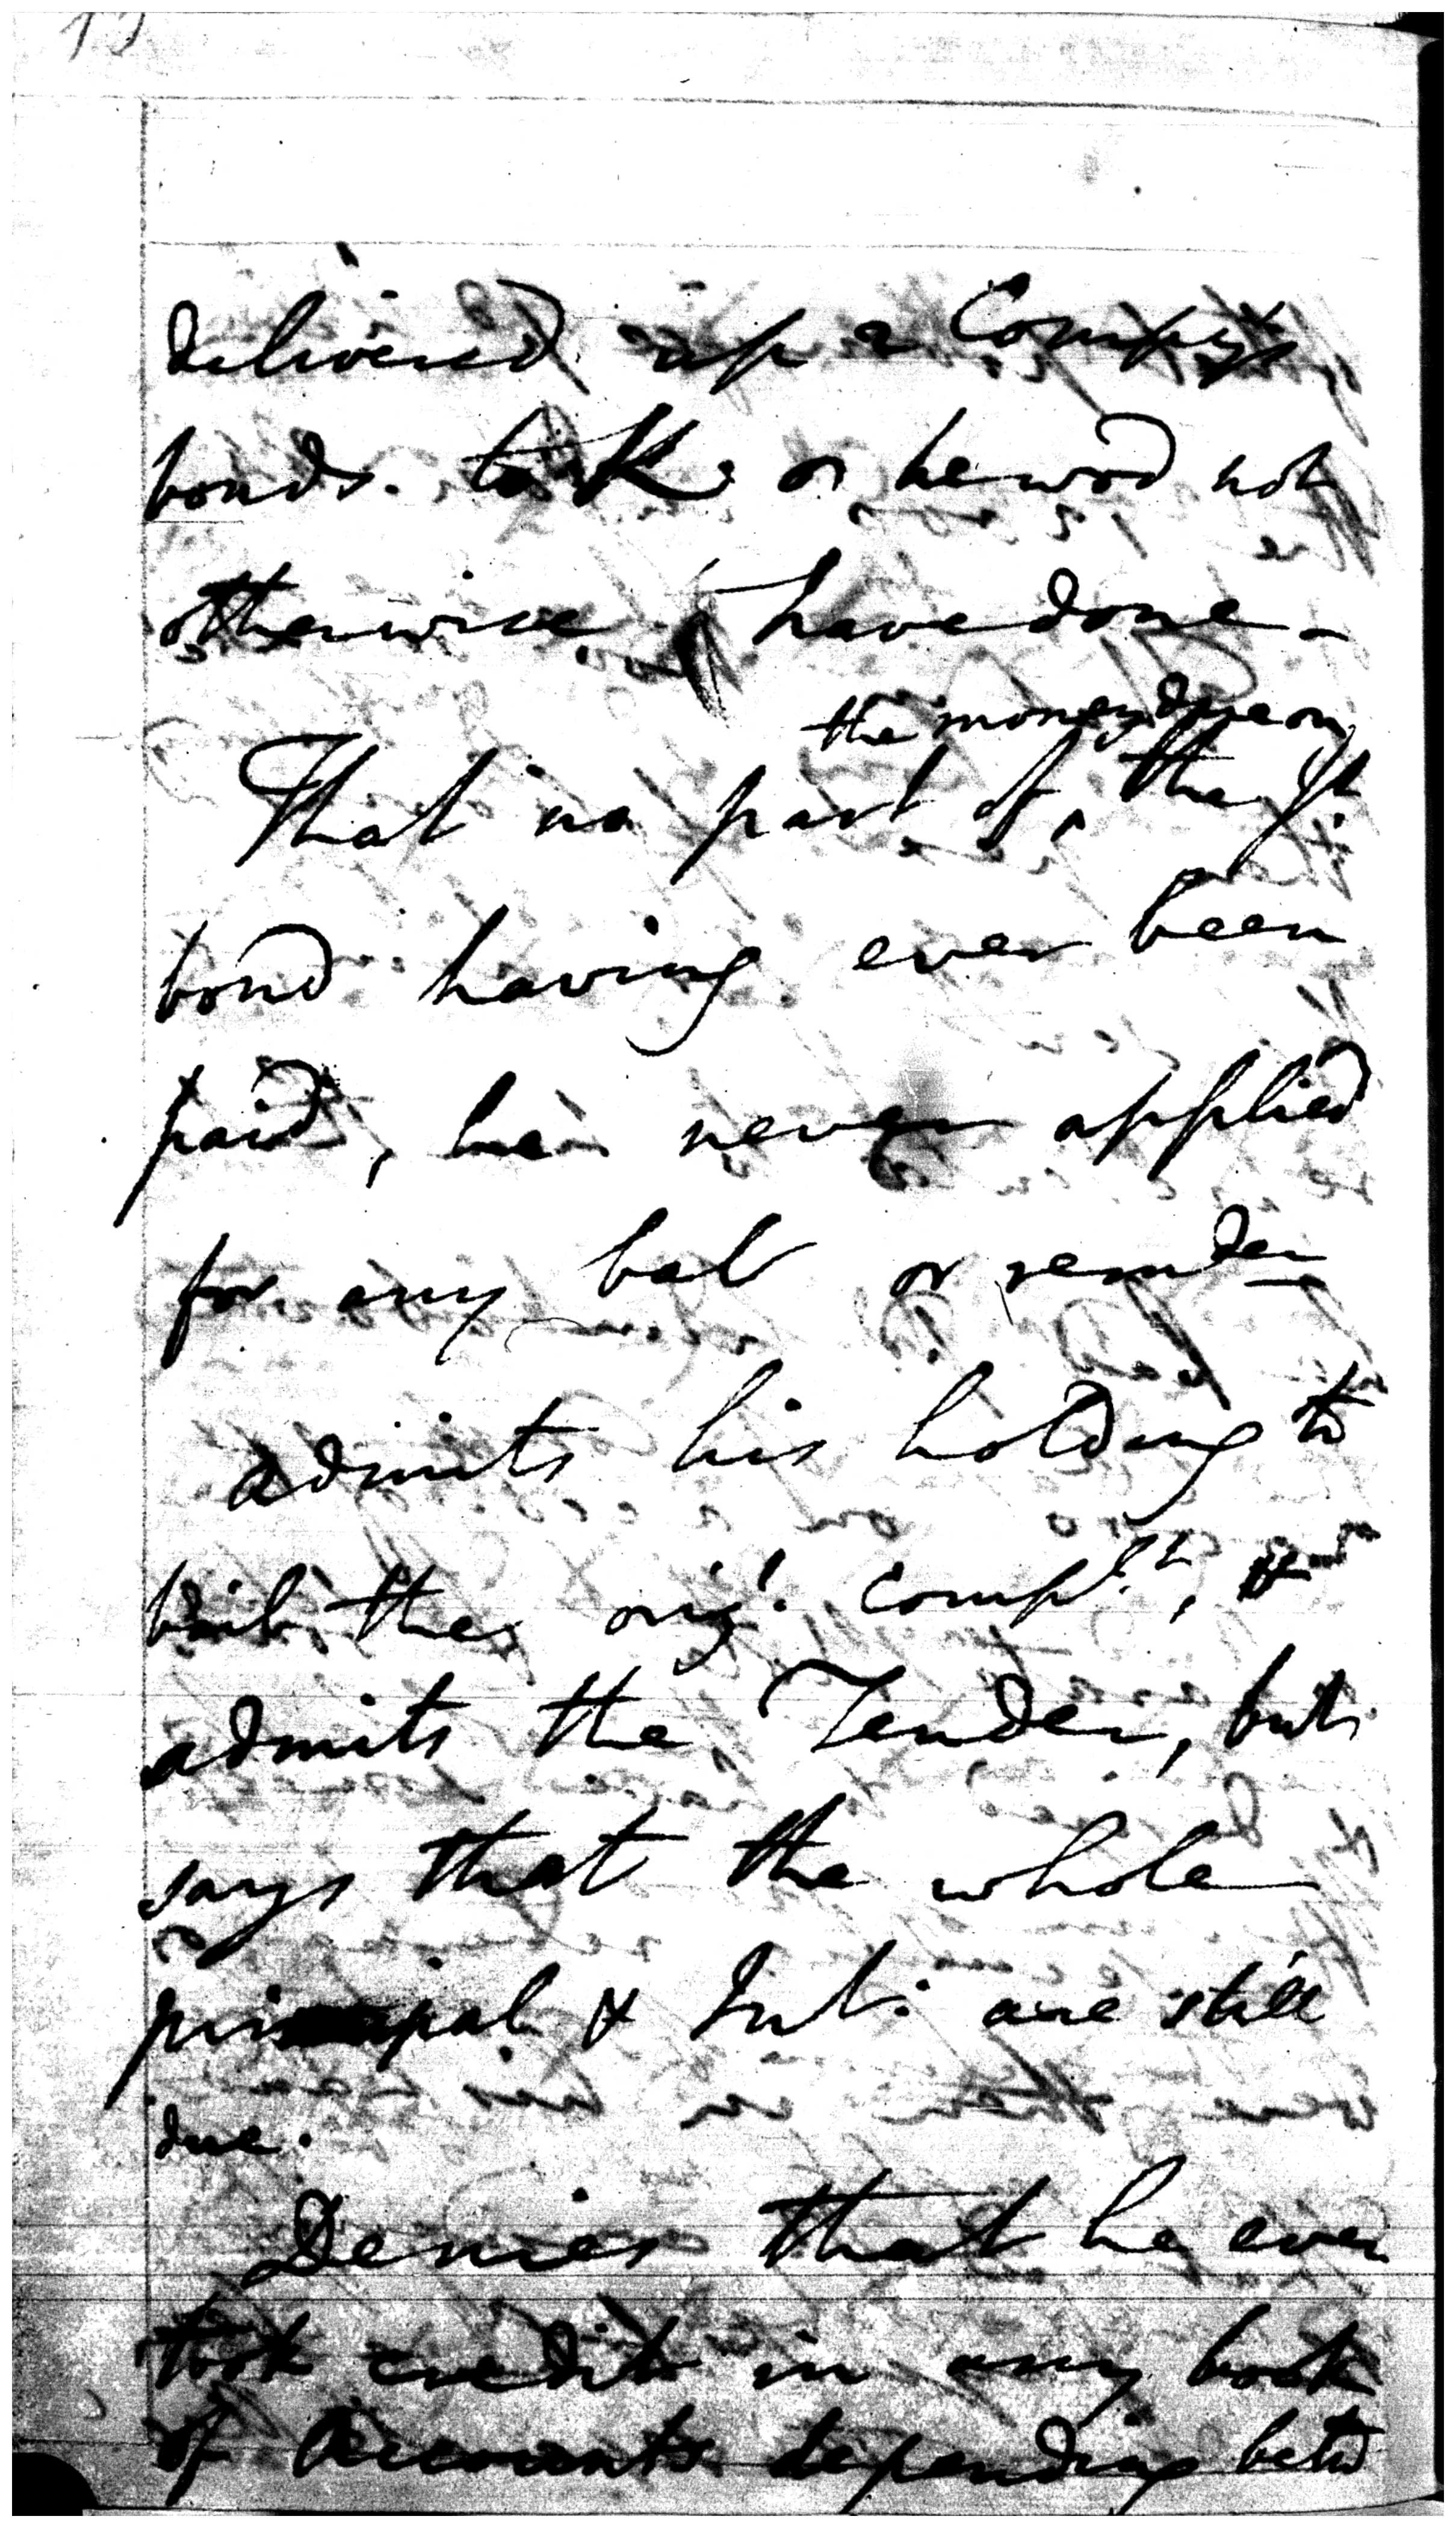 delivered up 2 Compys
bonds to K. or he wod not
otherwise have done -
the money due on
That no part of ^ the sd.
bond having ever been
paid, he never applied
for any bal or remder
admits his holding to
bail the orig! complt, &
admits the Tender, but
says that the whole
principal & Int: are still
due.
Denies that he ever
took credit in any book
of Accounts depending betw